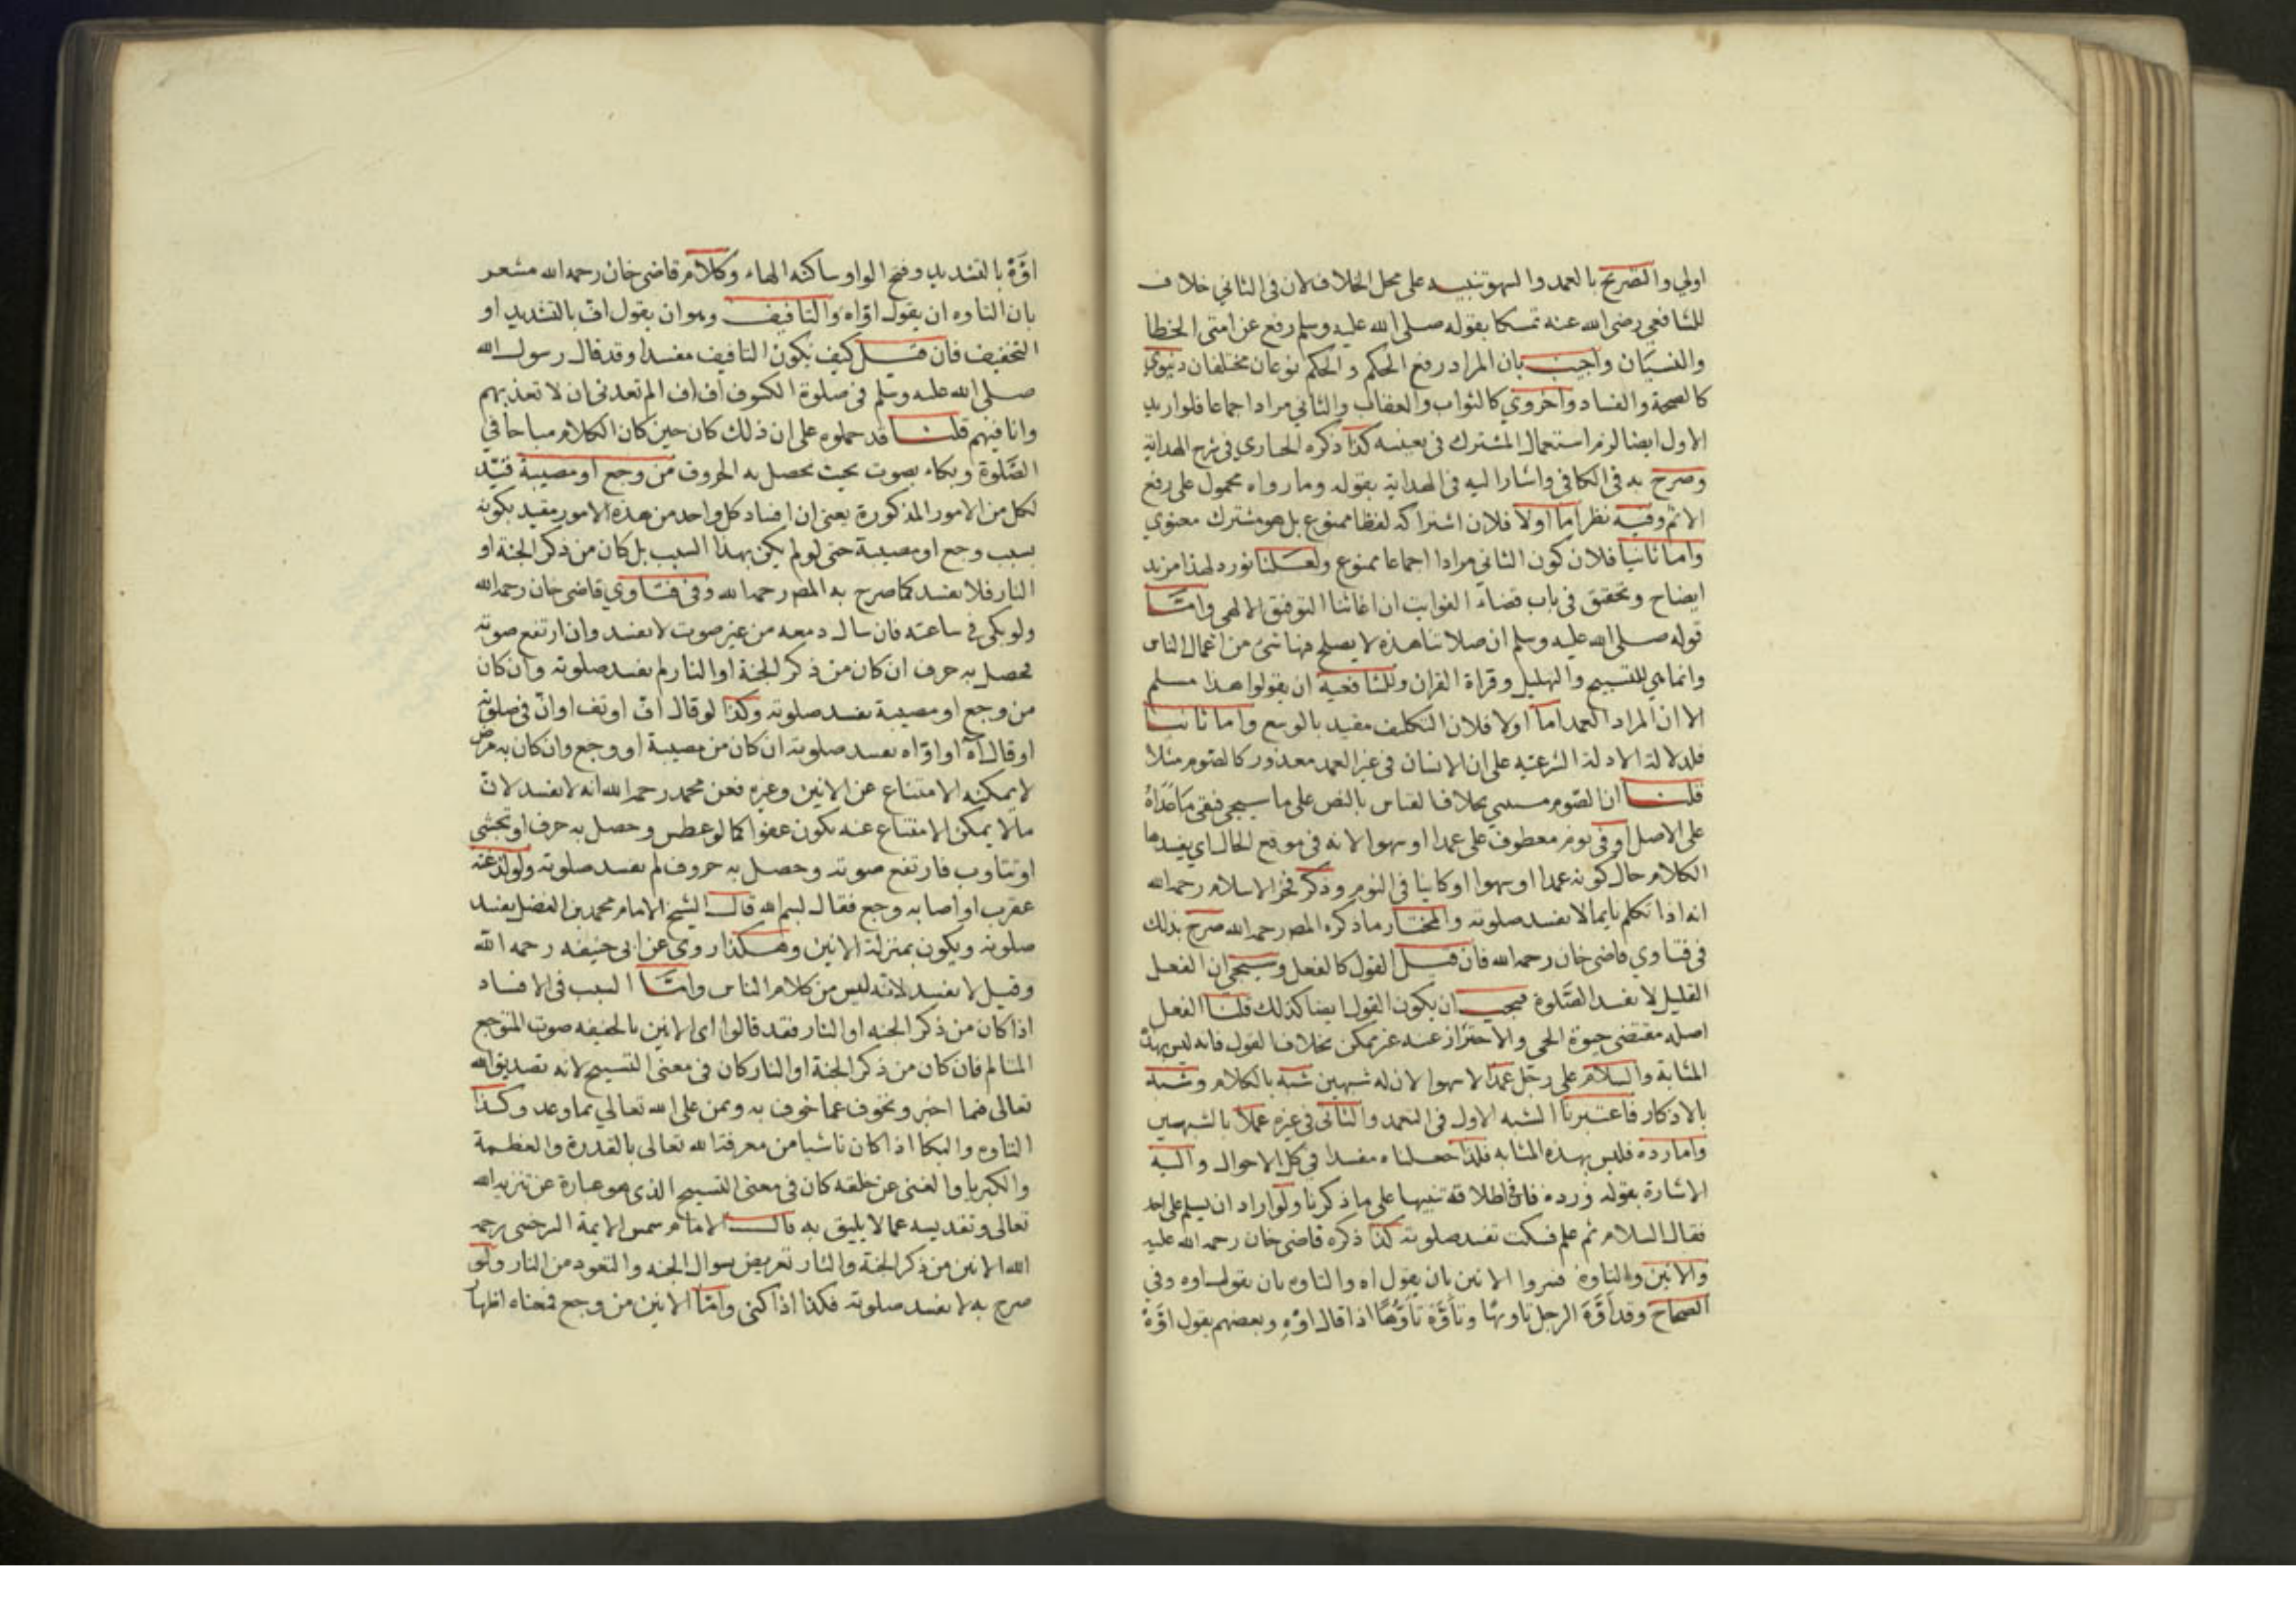 اولي والتصريح بالعمد والسهو تنبيه على محل الخلاف لان فى الثاني خلاف
للشافعي رضى الله عنه تمسكا بقوله صلى الله عليه وسلم رفع عن امتى الخطا
والنسيان واجيب بان المراد رفع الحكم والحكم نوعان مختلفان دنيوي
كالصحة والفساد واخروي كالثواب والعقاب والثاني مراد اجماعا فلو اريد
الاول ايضا لزم استعمال المشترك فى معنييه كذا ذكره الخبازي فى شرح الهداية
وصرح به فى الكافي واشار اليه فى الهداية بقوله وما رواه محمول على رفع
الاثم وفيه نظر اما اولا فلان اشتراكه لفظا ممنوع بل هو مشترك معنوي
واما ثانيا فلان كون الثاني مرادا اجماعا ممنوع ولعلنا نورد لهذا مزيد
ايضاح وتحقيق فى باب قضاء الفوايت ان اغاثنا التوفيق الالهي وامّا
قوله صلى الله عليه وسلم ان صلاتنا هذه لا يصلح فيها شئ من اعمال الناس
وانما هي للتسبيح والتهليل وقراة القران وللشافعية ان يقولوا هذا مسلم
الا ان المراد العمد اما اولا فلان التكليف مقيد بالوسع واما ثانيا
فلدلالة الادلة الشرعيه على ان الانسان فى غير العمد معذور كالصوم مثلا
قلنا ان الصوم مستثنى بخلاف القياس بالنص على ما سيجي فبقى ما عداه
على الاصل او فى نوم معطوف على عمدا او سهوا لانه فى موقع الحال اي يفسدها
الكلام حال كونه عمدا او سهوا او كاينا فى النوم وذكر فخر الاسلام رحمه الله
انه اذا تكلم نايما لا تفسد صلوته والمختار ما ذكره المص رحمه الله صرح بذلك
فى فتاوي قاضى خان رحمه الله فان قيل القول كالفعل وسيجي ان الفعل
القليل لا يفسد الصّلوة فيجب ان يكون القول ايضا كذلك قلنا الفعل
اصله مقتضى حيوة الحي والاحتراز عنه غير ممكن بخلاف القول فانه ليس بهذه
المثابة والسلام على رجل عمدا لا سهوا لان له شبهين شبه بالكلام وشبه
بالاذكار فاعتبرنا الشبه الاول فى التعمد والثانى فى غيره عملا بالشبهين
واما رده فليس بهذه المثابه فلذا جعلناه مفسدا فى كل الاحوال واليه
الاشارة بقوله ورده فان فى اطلاقه تنبيها على ما ذكرنا ولو اراد ان يسلم على احد
فقال السلام ثم علم فسكت تفسد صلوته كذا ذكره قاضى خان رحمه الله عليه
والانين والتاوه فسروا الانين بان يقول اه والتاوه بان يقول اوه وفى
الصحاح وقد اَوَّهَ الرجل تاويها وتأوّه تأوّهًا اذا قال اوْهِ وبعضهم يقول اوّهْ
اوَّهْ بالتشديد وفتح الواو ساكنة الهاء وكلام قاضى خان رحمه الله مشعر
بان التاوه ان يقول اوّاه والتافيف وهو ان يقول افّ بالتشديد او
التخفيف فان قيل كيف يكون التافيف مفسدا وقد قال رسول الله
صلى الله عليه وسلم فى صلوة الكسوف اف اف الم تعدنى ان لا تعذبهم
وانا فيهم قلنا قد حملوه على ان ذلك كان حين كان الكلام مباحا في
الصّلوة وبكاء بصوت بحيث يحصل به الحروف من وجع او مصيبة قيّد
لكل من الامور المذكورة يعنى ان افساد كل واحد من هذه الامور مقيد بكونه
بسبب وجع او مصيبة حتى لو لم يكن بهذا السبب بل كان من ذكر الجنة او
النار فلا يفسد كما صرح به المص رحمه الله وفى فتاوي قاضى خان رحمه الله
ولو بكى فى ساعته فان سال دمعه من غير صوت لا يفسد وان ارتفع صوته
فحصل به حرف ان كان من ذكر الجنة او النار لم يفسد صلوته وان كان
من وجع او مصيبة تفسد صلوته وكذا لو قال افّ او تف او انّ فى صلوته
او قال آه او اوّاه تفسد صلوته ان كان من مصيبة او وجع وان كان به مرض
لا يمكنه الامتناع عن الانين وغيره فعن محمد رحمه الله انه لا تفسد لان
ما لا يمكن الامتناع عنه يكون عفوا كما لو عطس وحصل به حرف او تجشى
او تثاوب فارتفع صوته وحصل به حروف لم تفسد صلوته ولو لدغته
عقرب او اصابه وجع فقال بسم الله قال الشيخ الامام محمد بن الفضل يفسد
صلوته ويكون بمنزلة الانين وهكذا روى عن ابى حنيفه رحمه الله
وقيل لا تفسد لانه ليس من كلام الناس وامّا السبب فى الافساد
اذا كان من ذكر الجنه او النار فقد قالوا اى الانين بالحقيقه صوت المتوجع
المتالم فان كان من ذكر الجنة او النار كان فى معنى التسبيح لانه تصديق الله
تعالى فيما اخبر وتخوف عما خوف به وتمن على الله تعالى بما وعد وكذا
التاوه والبكا اذا كان ناشيا من معرفة الله تعالى بالقدرة والعظمة
والكبريا والغنى عن خلقه كان فى معنى التسبيح الذى هو عبارة عن تنزيه الله
تعالى وتقديسه عما لا يليق به قال الامام شمس الايمة السرخسى رحمه
الله الانين من ذكر الجنة والنار تعريض بسوال الجنه والتعوذ من النار ولو
صرح به لا تفسد صلوته فكذا اذا كنى وامّا الانين من وجع فمعناه اظهار